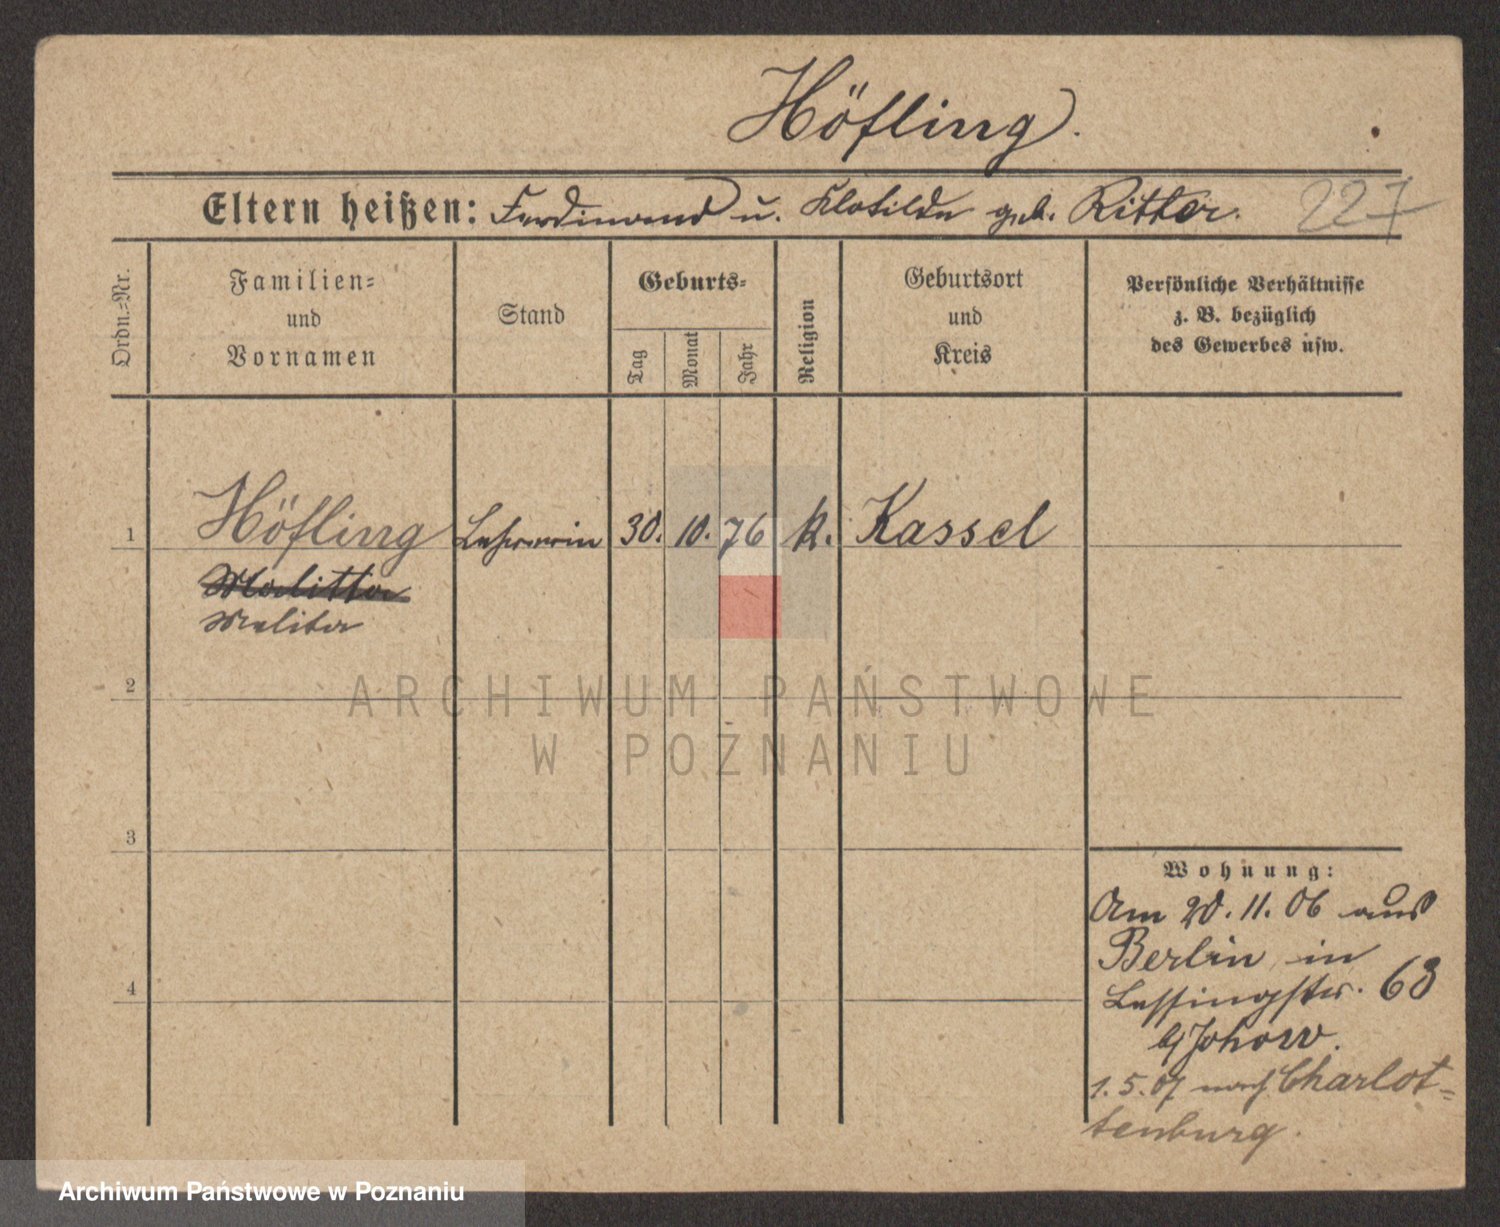 Höfling.
Eltern heißen: Ferdinand u. Klotilde geb. Ritter.
227
Ordn.-Nr.
Familien-
und
Vornamen
Stand
Geburts-
Tag
Monat
Jahr
Religion
Geburtsort
und
Kreis
Persönliche Verhältnisse
z. B. bezüglich
des Gewerbes usw.
1 Höfling Lehrerin 30. 10. 76 k. Kassel
Malitta
Melita
2
ARCHIWUM PAŃSTWOWE
W POZNANIU
3
Wohnung:
Am 20. 11. 06 aus
Berlin in
4
Lessingstr. 63
b/Johow.
1. 5. 07 nach Charlot-
tenburg.
Archiwum Państwowe w Poznaniu